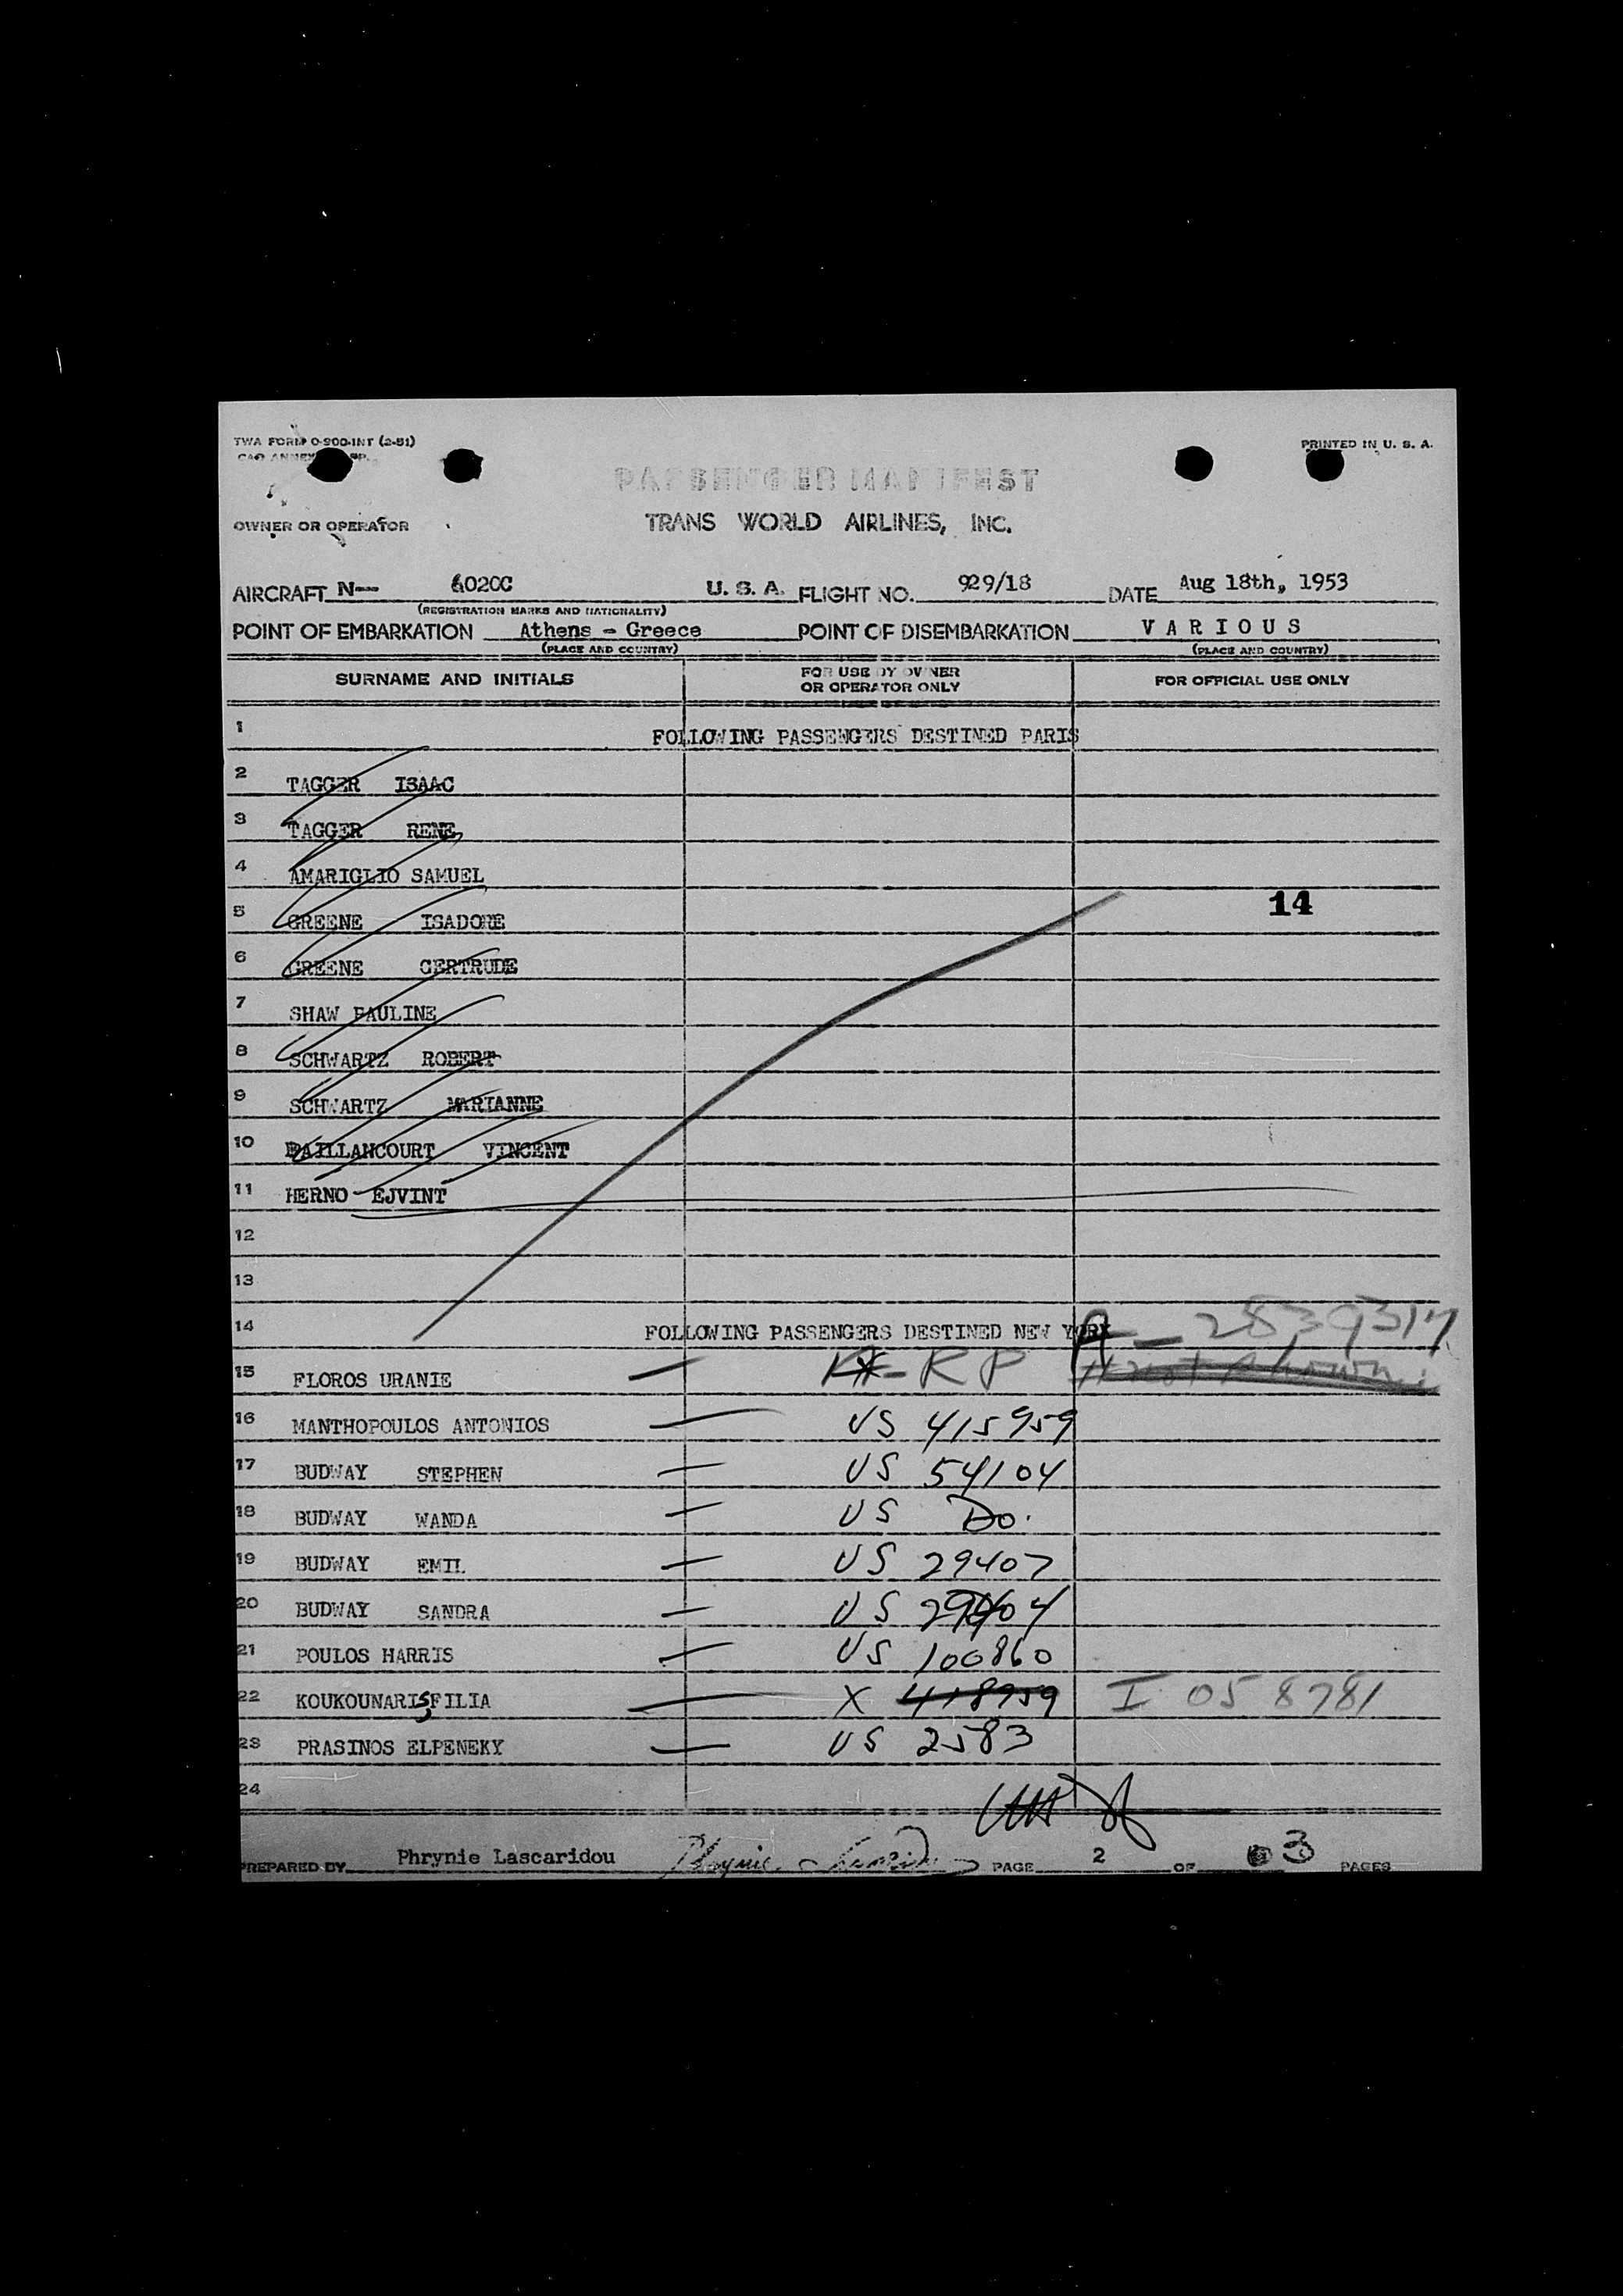 TWA FORM O-900-INT (2-51)
PRINTED IN U. S. A.
PASSENGER MANIFEST
OWNER OR OPERATOR TRANS WORLD AIRLINES, INC.
AIRCRAFT N-- 6020C U. S. A. FLIGHT NO. 929/18 DATE Aug 18th, 1953
(REGISTRATION MARKS AND NATIONALITY)
POINT OF EMBARKATION Athens - Greece POINT OF DISEMBARKATION V A R I O U S
(PLACE AND COUNTRY) (PLACE AND COUNTRY)
SURNAME AND INITIALS FOR USE BY OWNER OR OPERATOR ONLY FOR OFFICIAL USE ONLY
1 FOLLOWING PASSENGERS DESTINED PARIS
2 TAGGER ISAAC
3 TAGGER RENE
4 AMARIGLIO SAMUEL
5 GREENE ISADORE 14
6 GREENE GERTRUDE
7 SHAW PAULINE
8 SCHWARTZ ROBERT
9 SCHWARTZ MARIANNE
10 VAILLANCOURT VINCENT
11 HERNO EJVINT
12
13
14 FOLLOWING PASSENGERS DESTINED NEW YORK A-2839317
15 FLOROS URANIE — RP
16 MANTHOPOULOS ANTONIOS — US 415959
17 BUDWAY STEPHEN — US 54104
18 BUDWAY WANDA — US Do.
19 BUDWAY EMIL — US 29407
20 BUDWAY SANDRA — US
21 POULOS HARRIS — US 100860
22 KOUKOUNARIS FILIA — X 418959 I 058781
23 PRASINOS ELPENEKY — US 2583
24
PREPARED BY Phrynie Lascaridou PAGE 2 OF 3 PAGES